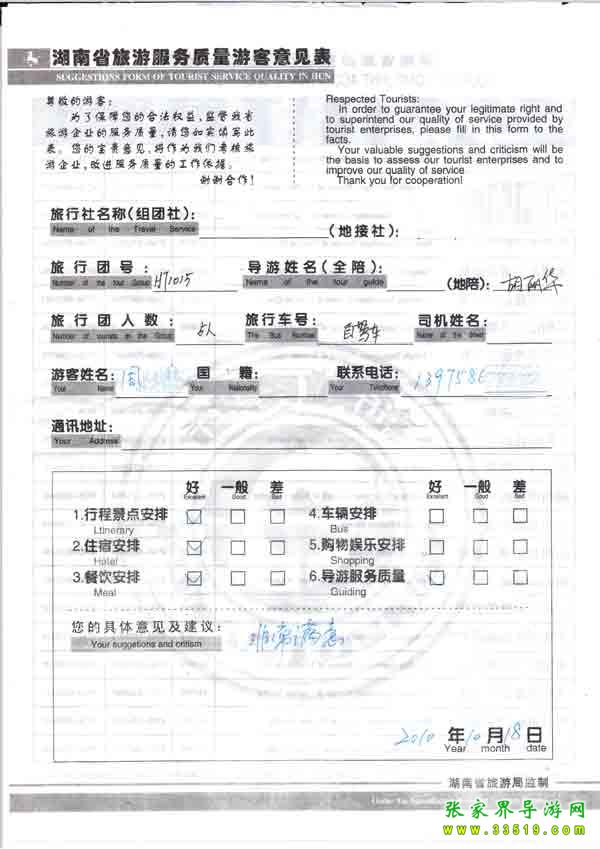 湖南省旅游服务质量游客意见表
SUGGESTIONS FORM OF TOURIST SERVICE QUALITY IN HUN
尊敬的游客:
为了保障您的合法权益,监督我省
旅游企业的服务质量,请您如实填写此
表。您的宝贵意见,将作为我们考核旅
游企业,改进服务质量的工作依据。
谢谢合作!
Respected Tourists:
In order to guarantee your legitimate right and
to superintend our quality of service provided by
tourist enterprises, please fill in this form to the
facts.
Your valuable suggestions and criticism will be
the basis to assess our tourist enterprises and to
improve our quality of service
Thank you for cooperation!
旅行社名称(组团社): (地接社):
Name of the Travel Service
旅行团号: 导游姓名(全陪): (地陪): 胡丽华
Number of the tour Group Name of the tour guide
旅行团人数: 旅行车号: 自驾车 司机姓名:
Number of tourists in the Group The Bus Number Name of the Driver
游客姓名: 周 国籍: 联系电话: 1397586
Your Name Your Nationality Your Telephone
通讯地址:
Your Address
好 一般 差 好 一般 差
Excellent Good Bad Excellent Good Bad
1.行程景点安排 4.车辆安排
Ltinerary Bus
2.住宿安排 5.购物娱乐安排
Hotel Shopping
3.餐饮安排 6.导游服务质量
Meal Guiding
您的具体意见及建议: 非常满意
Your suggetions and critism
2010 年 10 月 18 日
Year month date
湖南省旅游局监制
张家界导游网
www.33519.com